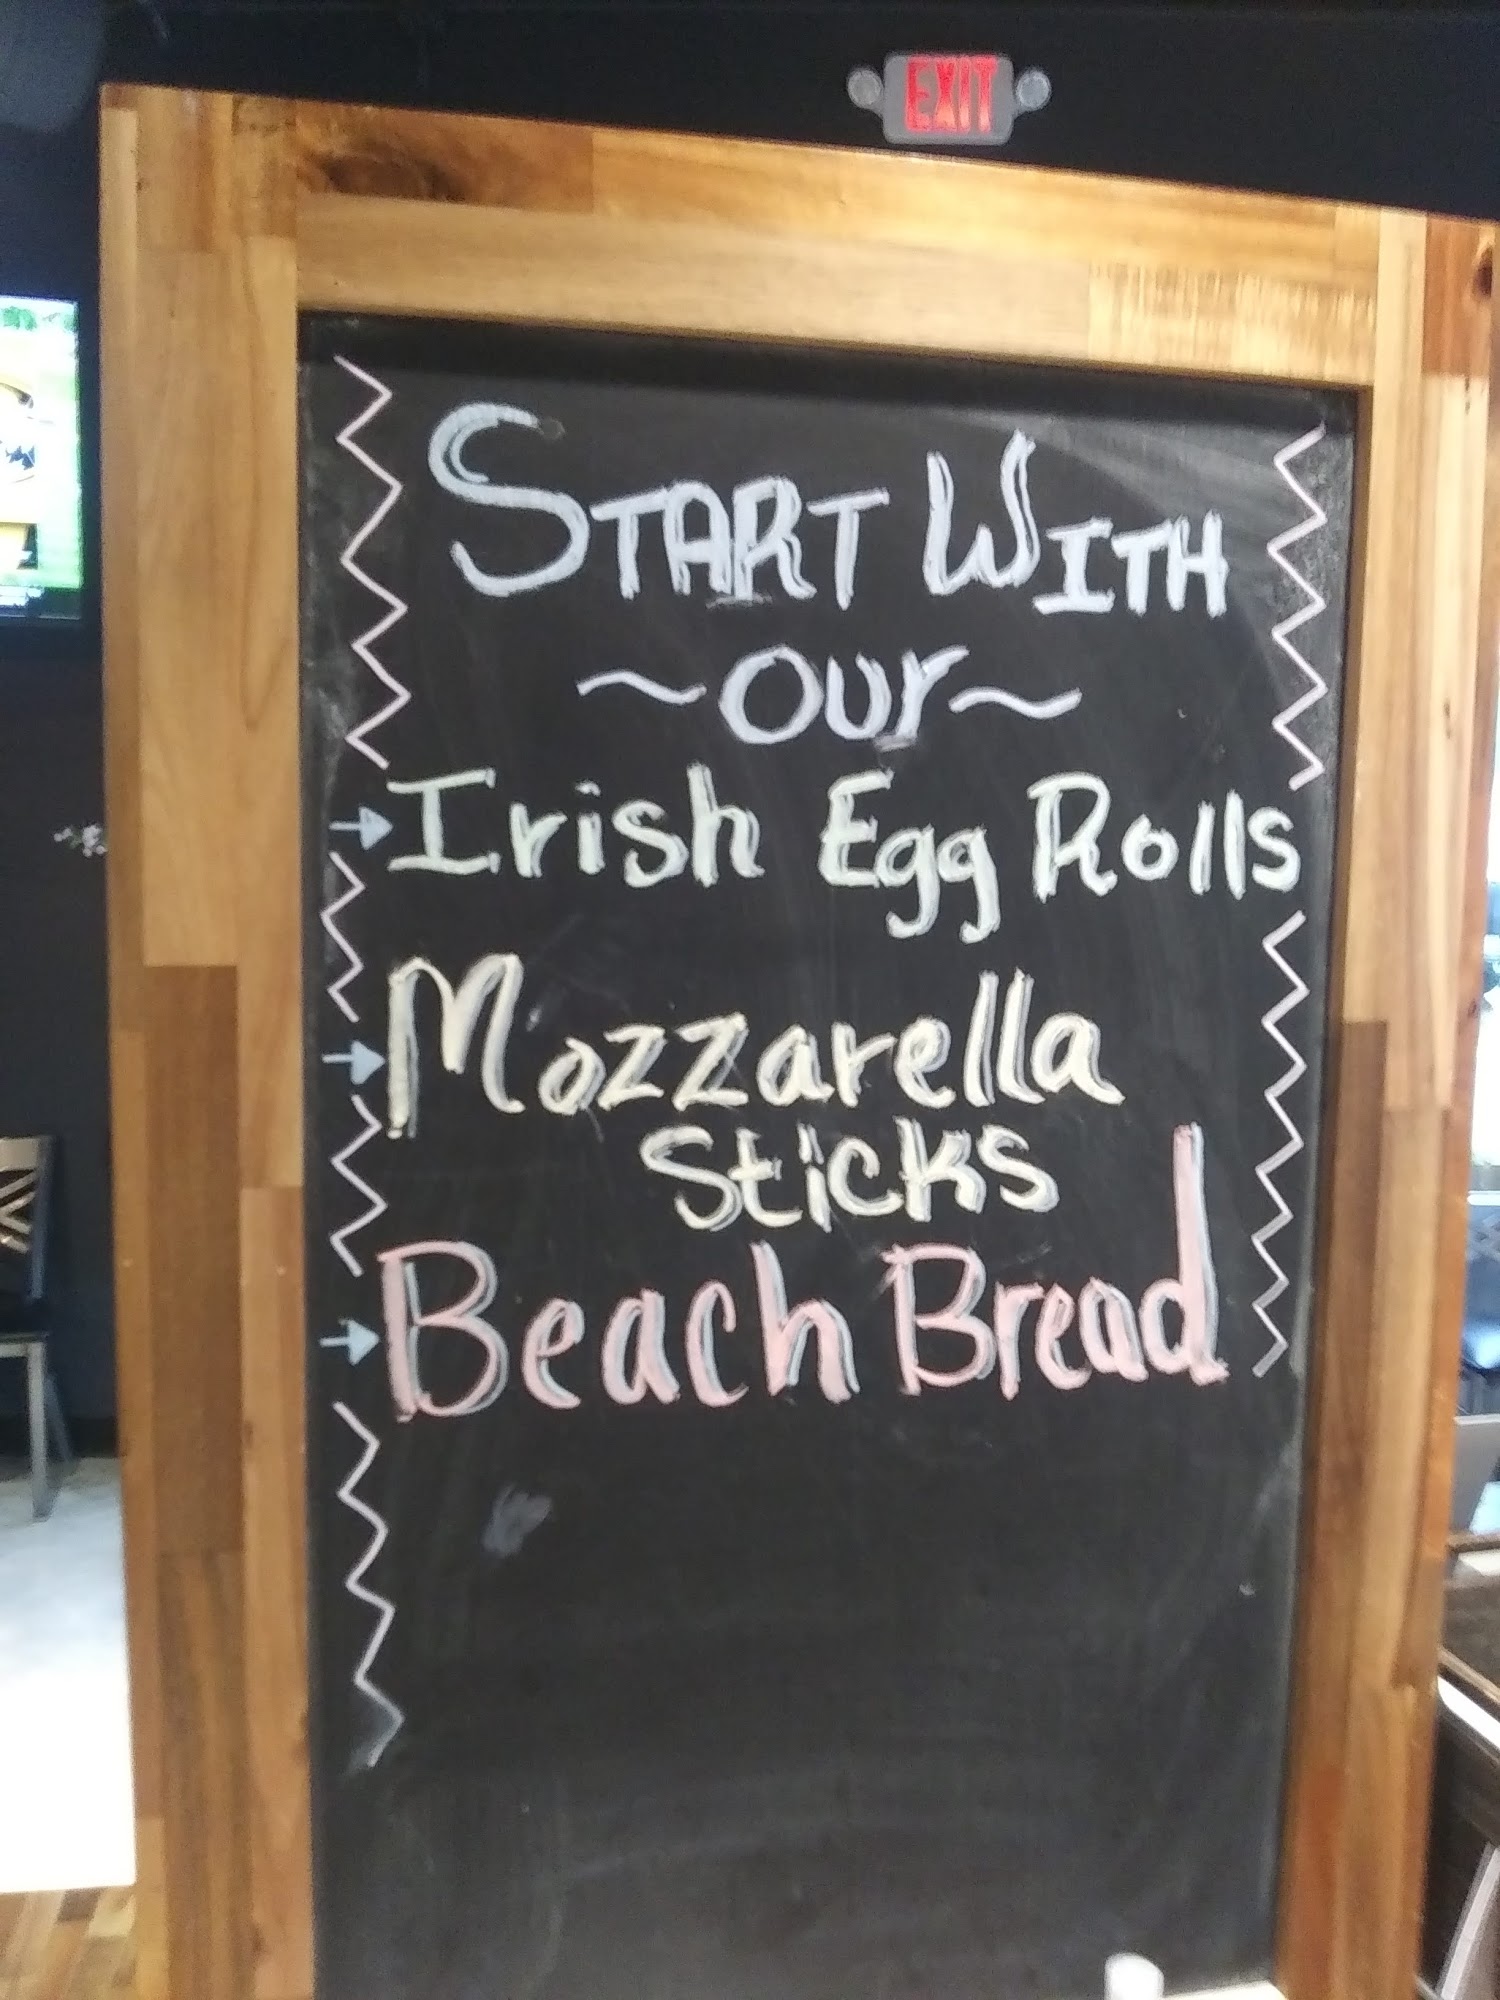 EXIT
START WITH
~our~
Irish Egg Rolls
Mozzarella
Sticks
Beach Bread